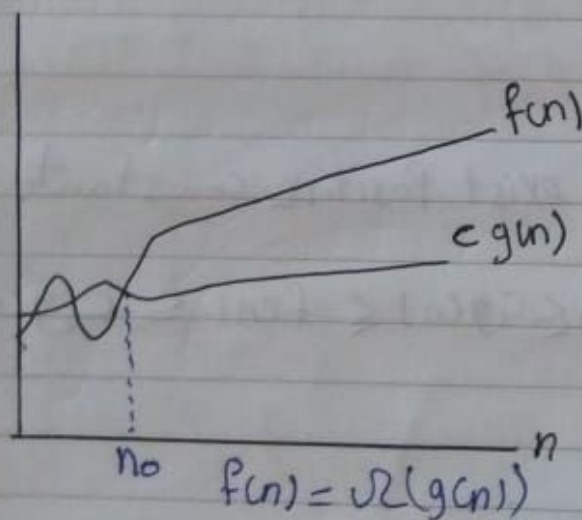 f(n)
c g(n)
n
n₀
f(n) = Ω(g(n))